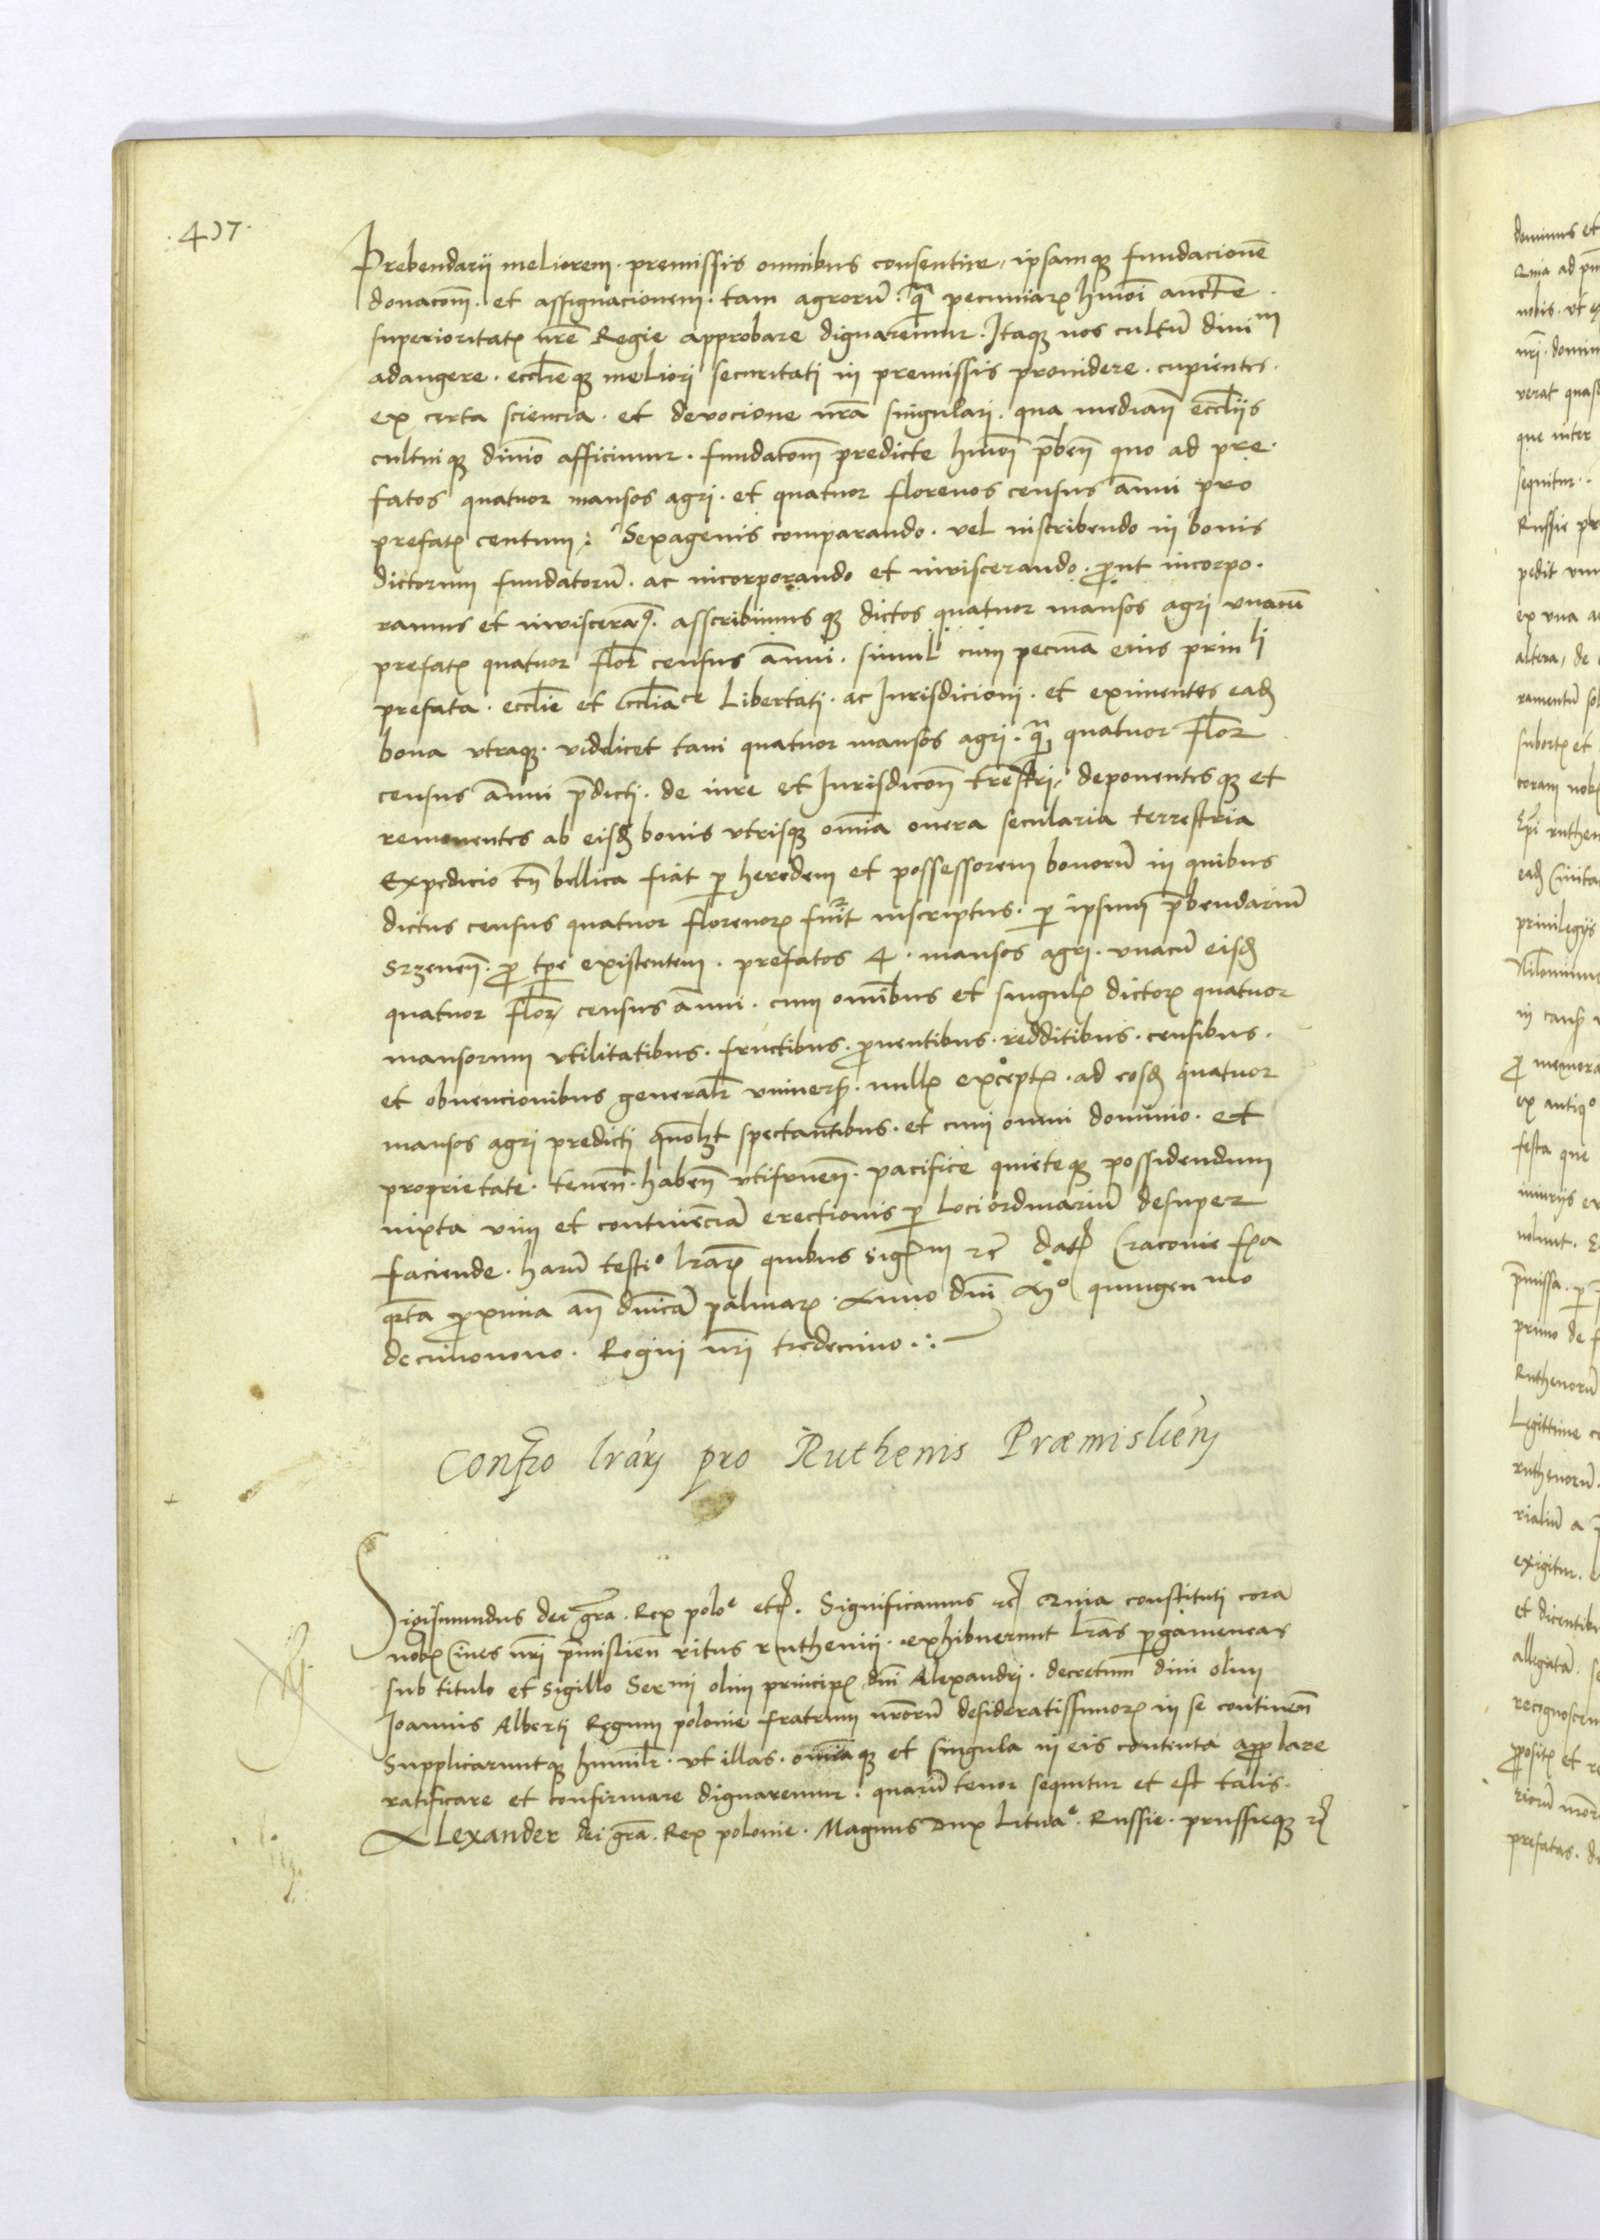 .407.
Prebendarij meliorem. premissis omnibus consentire, ipsamq̢ fundacionē
donacom̄. et assignacionem. tam agrorū. q̄ pecuniaꝝ hmōi aucte
superioritatꝭ nr̄e Regie approbare dignaremur. Itaq̢ nos cultū diui m
adaugere. eccliēq̢ meliori securitati in premissis prouidere. cupientes.
ex certa sciencia. et deuocione nr̄a singulari. qua mediān eccliis
cultuiq̢ diuīo afficimur. fundatom̄ predicte hmōi p̄ben̄ quo ad pre.
fatos quatuor mansos agri. et quatuor florenos census ānui pro
prefatꝭ centum: Sexagenis comparando. vel inscribendo in bonis
dictorum fundatorū. ac incorporando et inviscerando. ꝓut incorpo.
ramus et inviscera9. asscribimus q̢ dictos quatuor mansos agri vnacū
prefatꝭ quatuor flor̄ census ānui. simul cum pecunia eius prin li
prefata. ecclie et Eccliace Libertati. ac Jurisdicioni. et eximentes eadꝫ
bona vtraq̢. viddicet tam quatuor mansos agri. q̄ quatuor flor̄
census ānui p̄dicti. de iure et Jurisdicon̄ tr̄estri, deponentesq̢ et
remouentes ab eisdꝫ bonis vtrisq̢ om̄ia onera secularia terrestria
Expedicio tn̄ bellica fiāt ꝑ heredem et possessorem bonorū in quibus
dictus census quatuor florenoꝝ fuīt inscriptus. ꝑ ipsum p̄bendariū
ꝓ tpe existentem. prefatos 4. mansos agri. vnacū eisdꝫ
quatuor flor̄ census ānui. cum omībus et singulꝭ dictoꝝ quatuor
mansorum vtilitatibus. fructibus. ꝓuentibus. redditibus. censibus.
et obuencionibus generalr̄ vniuersꝭ. nullꝭ exceptꝭ. ad eosdꝫ quatuor
mansos agri predicti quolꝫt spectantibus. et cum omni dominio. et
proprietate. tenen̄. haben̄ vtifruen̄. pacifice quieteq̢ possidendum
iuxta vim et continenciā erectionis ꝑ Loci ordinariū desuper
faciende. harū testīo lr̄aꝝ quibus Sigꝭm rc̄ datꝭ Cracouie fꝭa
qr̄ta ꝓxima an̄ dnīcā palmaꝝ. Anno dnī Mº quingen mo
decimonono. Regni nrī tredecimo.:

Confꝛo lr̄arꝫ pro Ruthenis Præmislien̄

Sigismundus dei gr̄a. Rex poloe etcꝭ. Significamus rcꝭ Quia constituti corā
nobꝭ Ciues nrī p̄mislien̄ ritus rutheniij. exhibuerunt lr̄as ꝑgameneas
sub titulo et sigillo Ser mi olim principꝭ dnī Alexandri. decretum diui olim
Joannis Alberti Regum polonie fratrum nr̄orū desideratissimoꝝ in se continen̄
Supplicaruntq̢ humilr̄. vt illas. om̄iaq̢ et singula in eis contenta aꝓbare
ratificare et confirmare dignaremur. quarū tenor sequitur et est talis.
Alexander dei gr̄a. Rex polonie. Magnus Dux Lituae. Russie. prussieq̢ rcꝭ